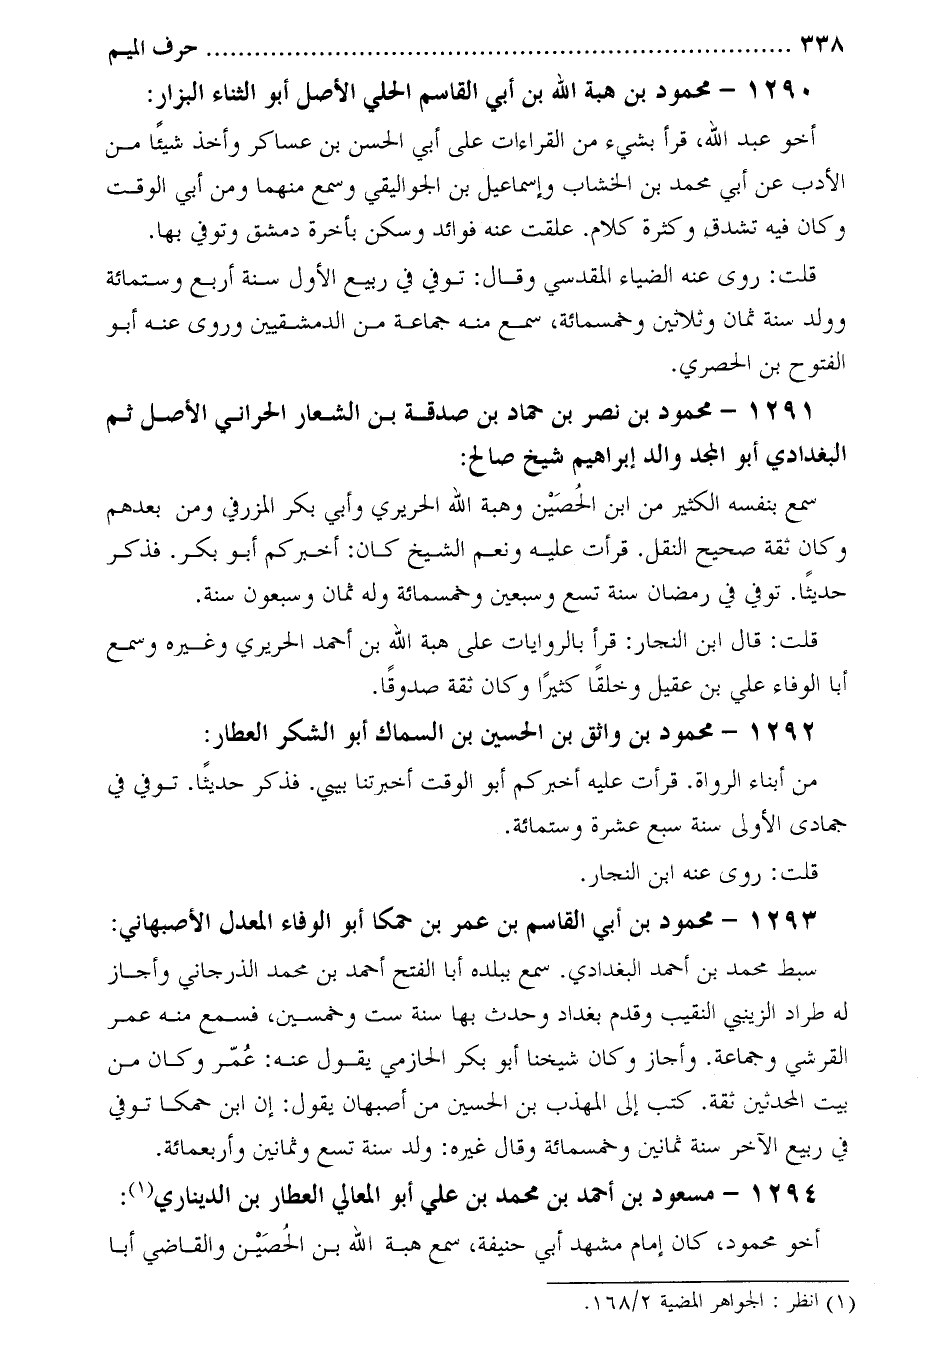 ٣٣٨ ........................................................................ حرف الميم
١٢٩٠ – محمود بن هبة الله بن أبي القاسم الحلي الأصل أبو الثناء البزار:
أخو عبد الله، قرأ بشيء من القراءات على أبي الحسن بن عساكر وأخذ شيئًا مـن
الأدب عن أبي محمد بن الخشاب وإسماعيل بن الجواليقي وسمع منهما ومن أبي الوقـت
وكان فيه تشدق وكثرة كلام. علقت عنه فوائد وسكن بأخرة دمشق وتوفي بها.
قلت: روى عنه الضياء المقدسي وقـال: تـوفي في ربيـع الأول سـنة أربـع وسـتمائة
وولد سنة ثمان وثلاثين وخمسمائة، سمـع منـه جماعـة مـن الدمشـقيين وروى عنـه أبـو
الفتوح بن الحصري.
١٢٩١ – محمود بن نصر بن حماد بن صدقـة بـن الشـعار الحراني الأصـل ثـم
البغدادي أبو المجد والد إبراهيم شيخ صالح:
سمع بنفسه الكثير من ابن الحُصَيْن وهبة الله الحريري وأبي بكر المزرفي ومن بعدهم
وكان ثقة صحيح النقل. قرأت عليـه ونعـم الشـيخ كـان: أخـبركم أبـو بكـر. فذكـر
حديثًا. توفي في رمضان سنة تسع وسبعين وخمسمائة وله ثمان وسبعون سنة.
قلت: قال ابن النجار: قرأ بالروايات على هبة الله بن أحمد الحريري وغـيره وسمـع
أبا الوفاء علي بن عقيل وخلقًا كثيرًا وكان ثقة صدوقًا.
١٢٩٢ – محمود بن واثق بن الحسين بن السماك أبو الشكر العطار:
من أبناء الرواة. قرأت عليه أخبركم أبو الوقت أخبرتنا بيبي. فذكر حديثًا. تـوفي في
جمادى الأولى سنة سبع عشرة وستمائة.
قلت: روى عنه ابن النجار.
١٢٩٣ – محمود بن أبي القاسم بن عمر بن حمكا أبو الوفاء المعدل الأصبهاني:
سبط محمد بن أحمد البغدادي. سمع ببلده أبا الفتح أحمد بن محمد الذرجاني وأجـاز
له طراد الزينبي النقيب وقدم بغداد وحدث بها سنة ست وخمسـين، فسـمع منـه عمـر
القرشي وجماعة. وأجاز وكان شيخنا أبو بكر الحازمي يقـول عنـه: عُمّـر وكـان مـن
بيت المحدثين ثقة. كتب إلى المهذب بن الحسين من أصبهان يقول: إن ابن حمكـا تـوفي
في ربيع الآخر سنة ثمانين وخمسمائة وقال غيره: ولد سنة تسع وثمانين وأربعمائة.
١٢٩٤ – مسعود بن أحمد بن محمد بن علي أبو المعالي العطار بن الديناري(١):
أخو محمود، كان إمام مشهد أبي حنيفة، سمع هبـة الله بـن الحُصَيْـن والقـاضي أبـا
(١) انظر : الجواهر المضية ١٦٨/٢.